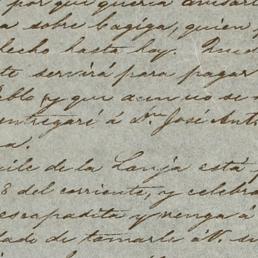 por que queria avisar
a sobre bagiga, quien
hecho hasta hoy. Pued
te servirá para pagar
blo, y que aun no se
entregaré á Dn Jose Ant
a.
cile de la Lonja está
8 del corriente, y celebra
escapadita y venga á
dad de tomarla á V. su